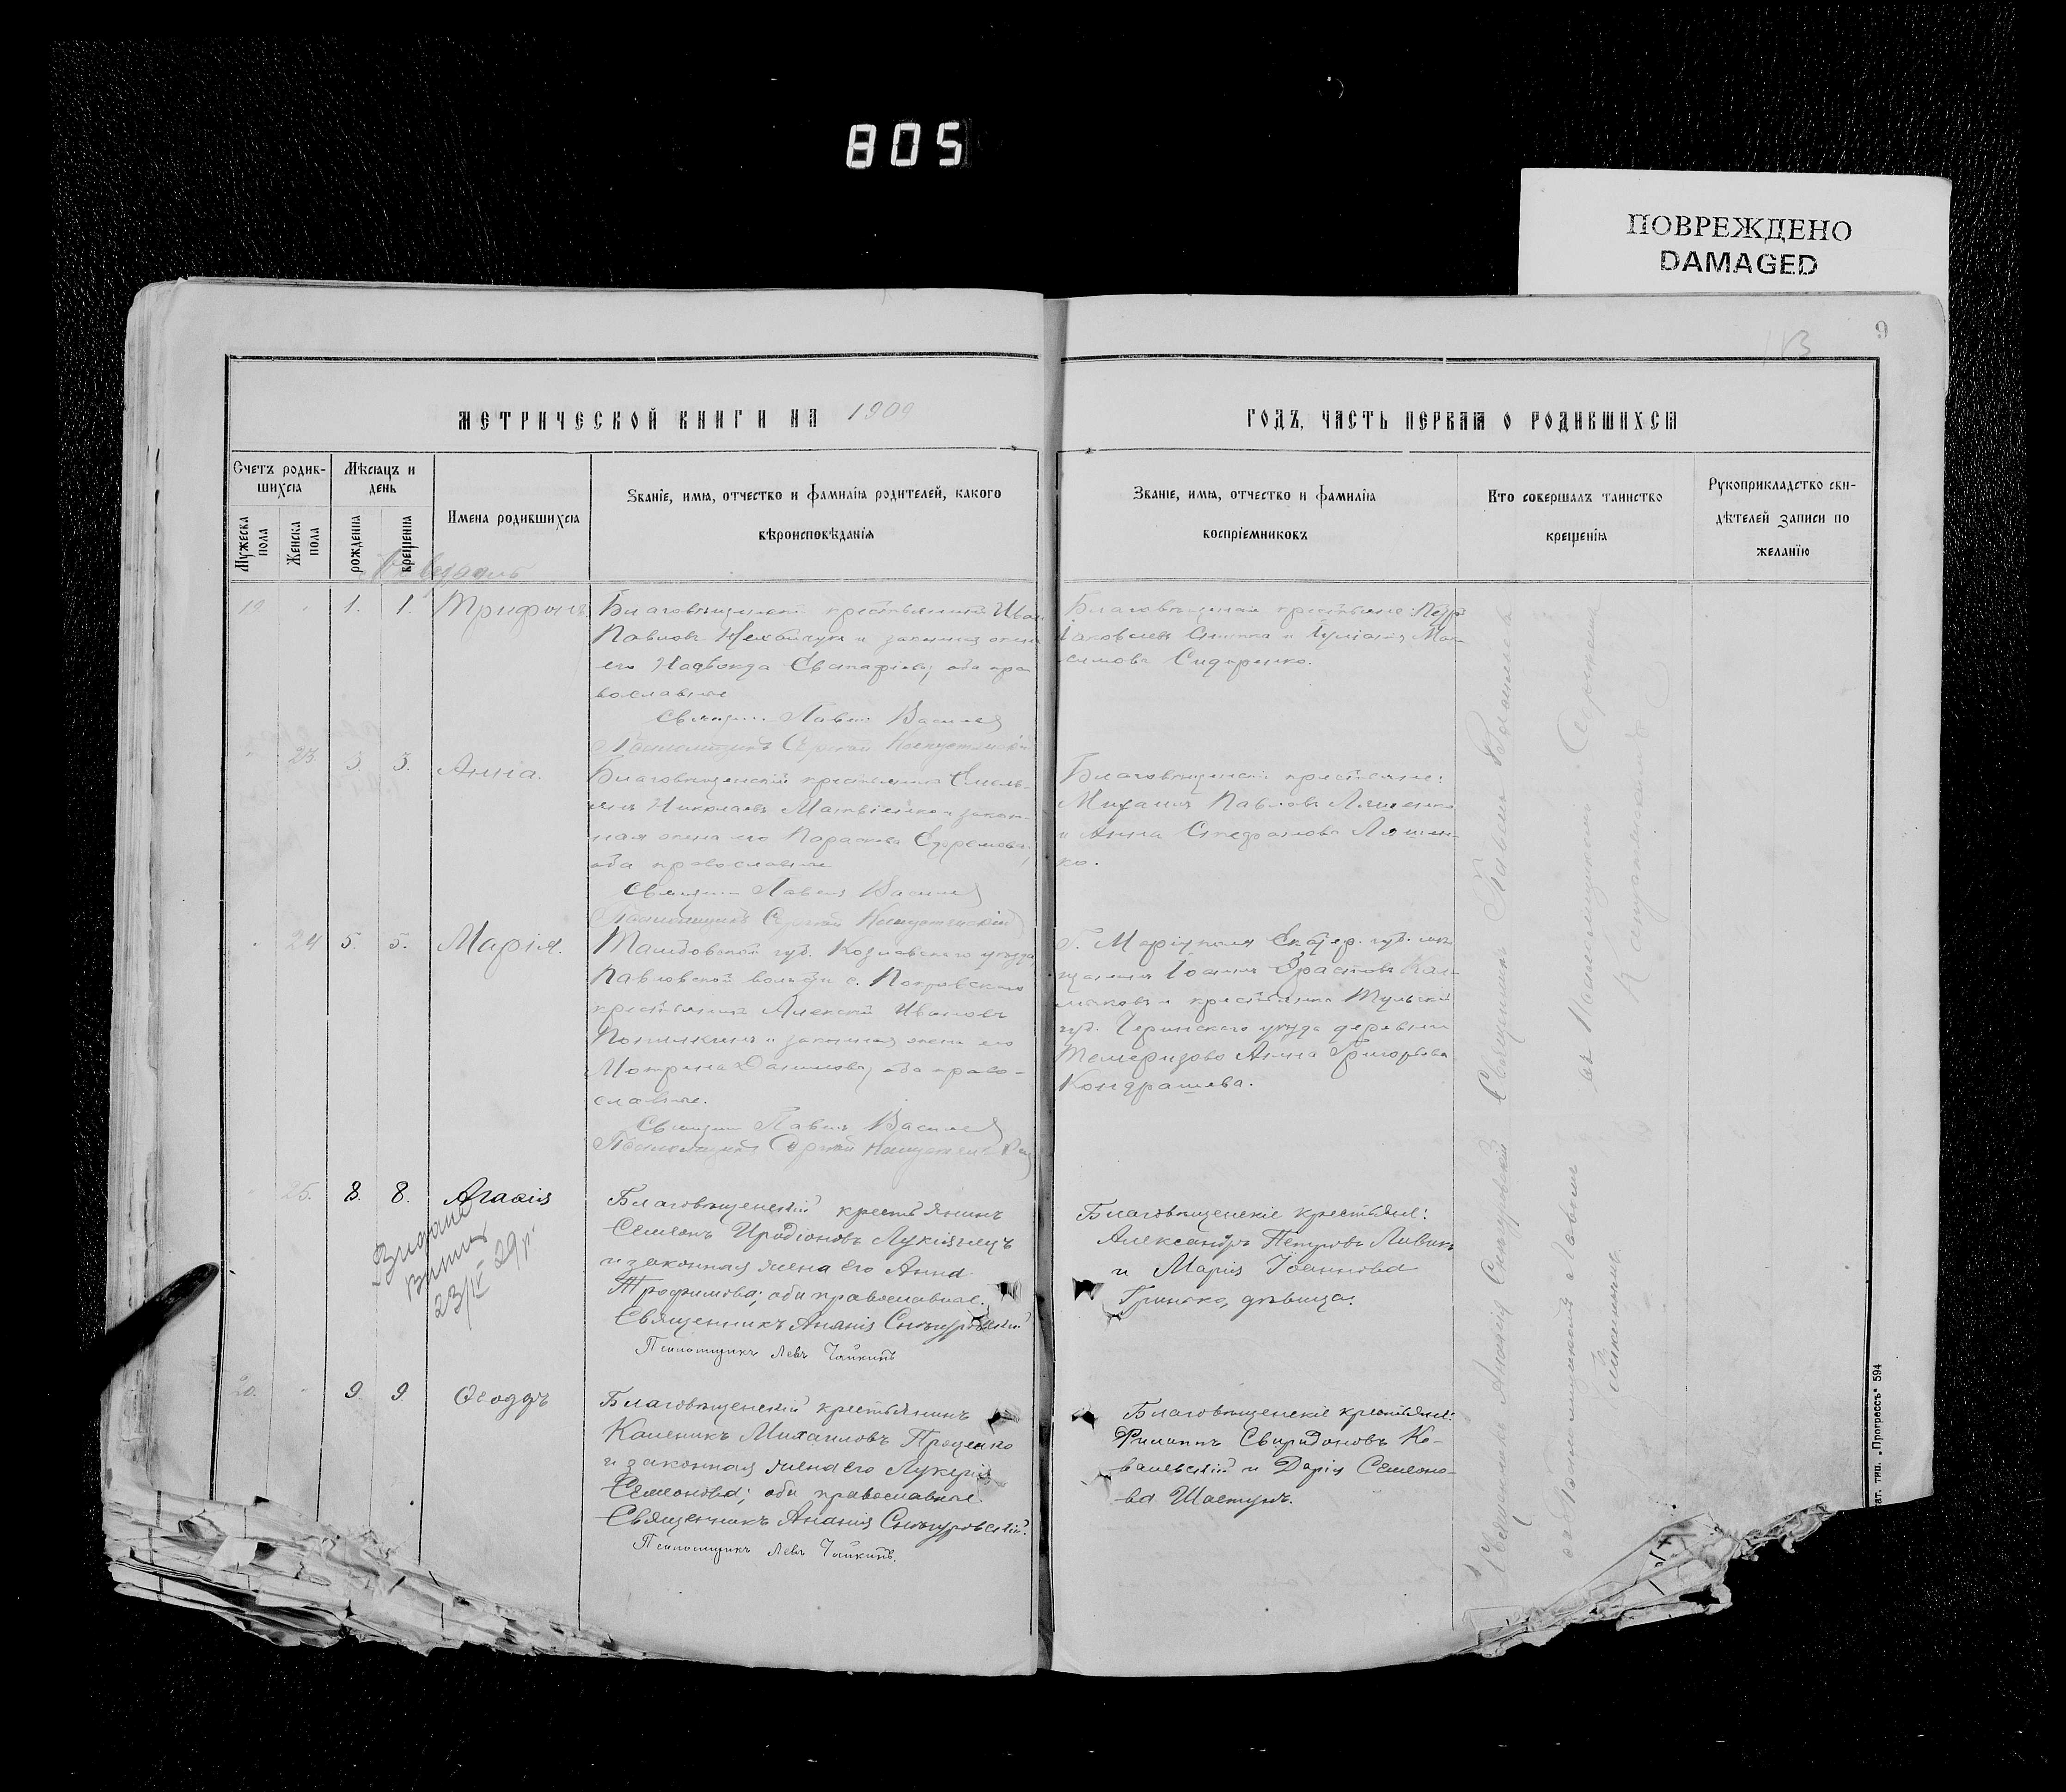 805
ПОВРЕЖДЕНО
DAMAGED
9
МЕТРИЧЕСКОЙ КНИГИ НА 1909
ГОДЪ, ЧАСТЬ ПЕРВАЯ О РОДИВШИХСЯ
Счетъ родив-
шихся
Мужеска пола
Женска пола
Мѣсяцъ и
день
рожденія
крещенія
Имена родившихся
Званіе, имя, отчество и фамилія родителей, какого
вѣроисповѣданія
Званіе, имя, отчество и фамилія
воспріемниковъ
Кто совершалъ таинство
крещенія
Рукоприкладство сви-
дѣтелей записи по
желанію
19. 1. 1. Трифонъ.
Благовѣщенскій крестьянинъ Иван
Павловъ и законная жена
его Евстафіева, оба пра
вославные
Священ. Павелъ Василев
Псаломщикъ Сергѣй
Благовѣщенскіе крестьяне: Петръ
Іаковлевъ и Іуліанія Мак-
симова Сидоренко.
23 3. 3. Анна.
Благовѣщенскій крестьянинъ Емель-
янъ Николаевъ Матвіенко и закон-
ная жена его Параскева Ефремова,
оба православные
Священ. Павелъ Василев
Псаломщикъ Сергѣй
Благовѣщенскіе крестьяне:
Михаилъ Павловъ Ляшенко
и Анна Стефанова Ляшен-
ко.
24 5. 5. Марія.
Тамбовской губ. Козловскаго уѣзда
Павловской волости с. Покровскаго
крестьянинъ Алексѣй Ивановъ
и законная жена его
Мотрона Данилова, оба право-
славные.
Священ. Павелъ Василев
Псаломщикъ Сергѣй
Г. Маріуполя Екатер. губ. мѣ
щанинъ Іоаннъ Эрастовъ Кал-
мыковъ и крестьянка Тульской
губ. Чернскаго уѣзда деревни
Анна Григорьева
Кондрашева.
25. 8. 8. Агафія
23/IV 29 р.
Благовѣщенскій крестьянинъ
Семеонъ Иродіоновъ Лукіянецъ
и законная жена его Анна
Трофимова; оба православные.
Священникъ Ананія Снѣгуровскій
Псаломщикъ Левъ Чайкинъ
Благовѣщенскіе крестьяне:
Александръ Петровъ
и Марія Іоаннова
Гринько, дѣвица.
20. 9. 9. Ѳеодоръ
Благовѣщенскій крестьянинъ
Каленикъ Михаиловъ Проценко
и законная жена его Лукерія
Семеонова; оба православные.
Священникъ Ананія Снѣгуровскій.
Псаломщикъ Левъ Чайкинъ.
Благовѣщенскіе крестьяне:
Филиппъ Свиридоновъ Ко-
валевскій и Дарія Семеоно-
ва Шастунъ.
Священникъ Ананія Снѣгуровскій Священникъ Павелъ Василев
съ Псаломщикомъ Львомъ съ Псаломщикомъ Сергѣемъ
Чайкинымъ.
ат. тип. „Прогрессъ" 594